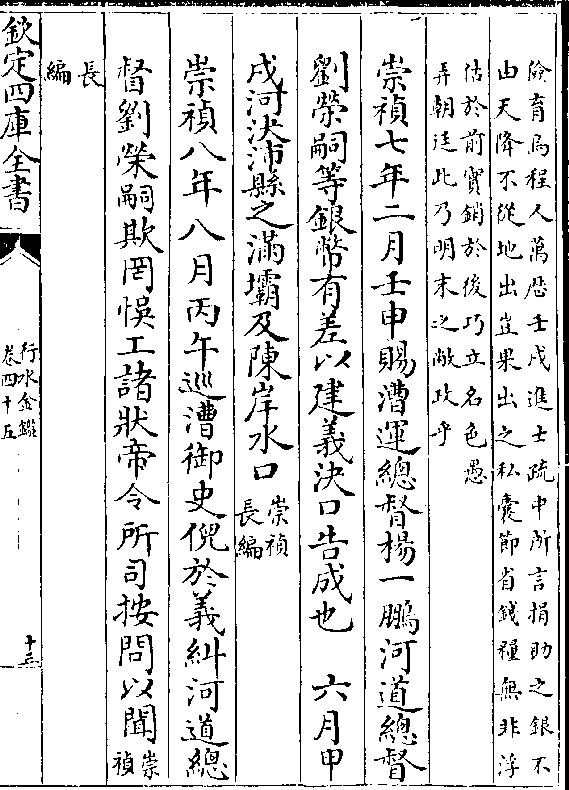 儉育烏程人萬厯壬戌進士疏中所言捐助之銀不
由天降不從地出豈果出之私囊節省錢糧無非浮
估於前實銷於後巧立名色愚
弄朝廷此乃明末之敝政乎
崇禎七年二月壬申賜漕運總督楊一鵬河道總督
劉榮嗣等銀幣有差以建義決口告成也　六月甲
戌河決沛縣之滿壩及陳岸水口
崇禎
長編
崇禎八年八月丙午巡漕御史倪於義糾河道總
督劉榮嗣欺罔悞工諸狀帝令所司按問以聞
崇
禎
長
編
欽定四庫全書
行水金鑑
卷四十五
十三